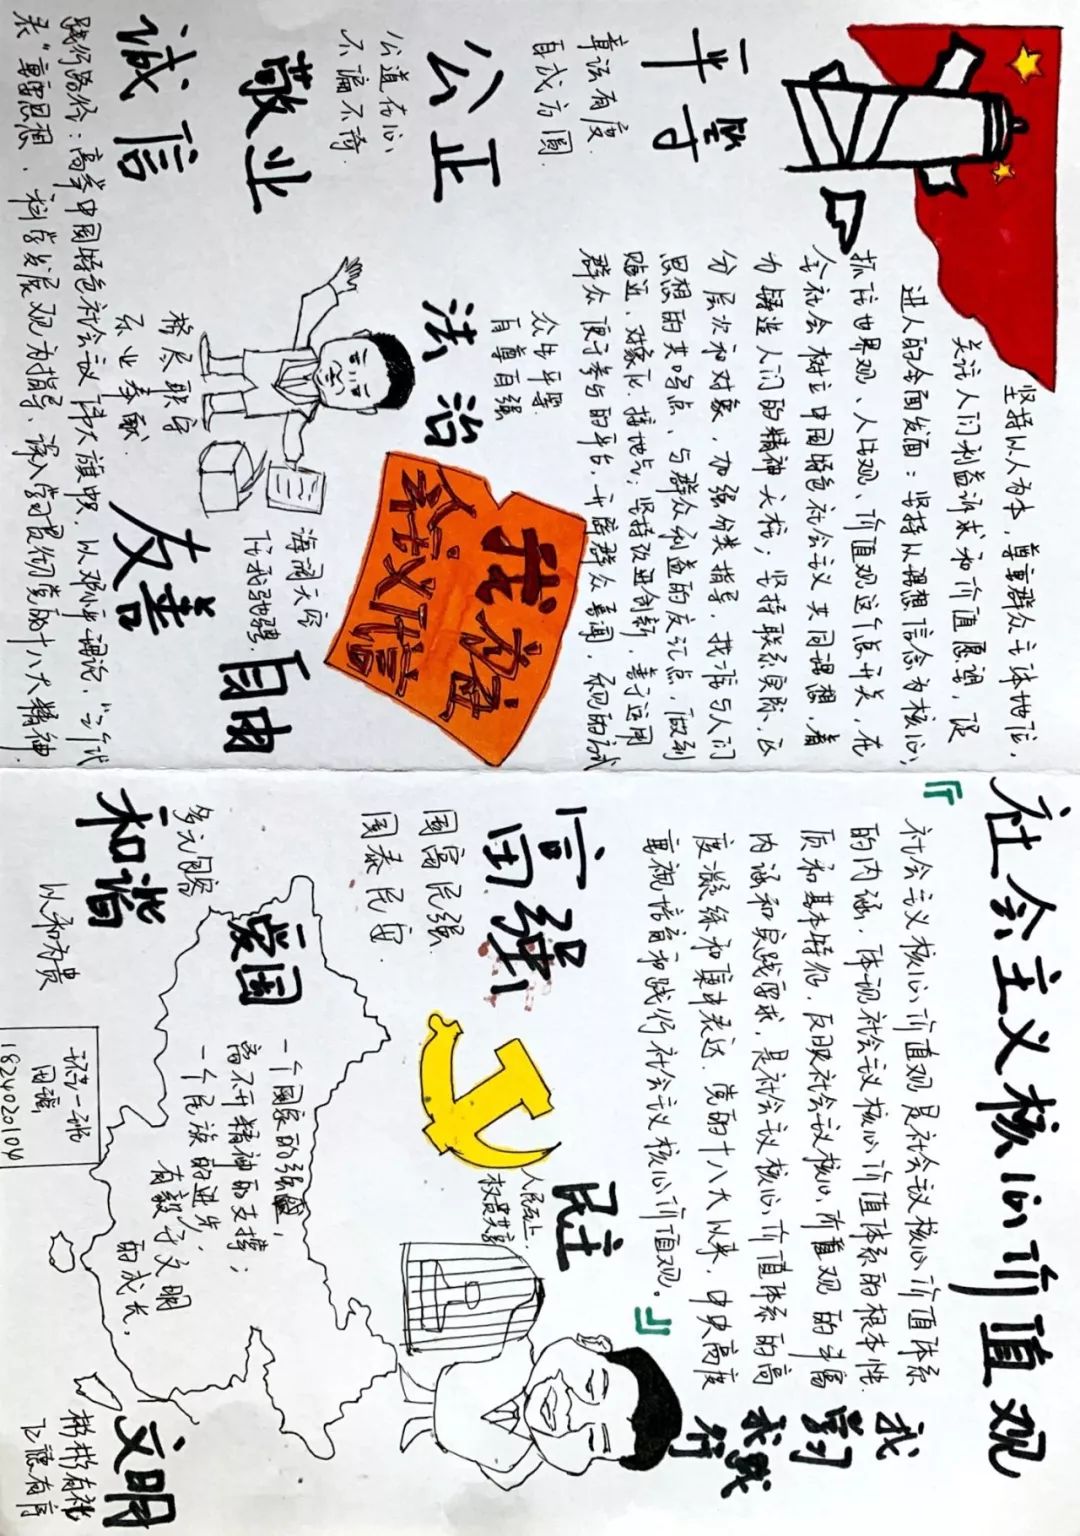 社会主义核心价值观
『
社会主义核心价值观是社会议核心价值体系
的内涵，体现社会议核心价值体系的根本性
质和基本特征，反映社会议核心价值观的丰富
内涵和实践要求，是社会议核心价值体系的高
度凝练和集中表达。党的十八大以来，中央高度
重视培育和践行社会主义核心价值观。
』
我
学习
我践
行
富强
国富民强
国泰民安
民主
人民至上
文明
彬彬有礼
和谐
多元包容
以和为贵
爱国
一个国家的强盛，
离不开精神的支撑；
一个民族的进步，
有赖于文明
的成长。
1824020104
平等
章法有度
自成方圆
公正
公道在心
不偏不倚
敬业
恪尽职守
乐业奉献
诚信
法治
众生平等
自尊自强
友善
自由
海阔天空
任我驰骋
我为社
会主义代言
坚持以人为本，尊重群众主体地位，
关注人们利益诉求和价值愿望，促
进人的全面发面；坚持以理想信念为核心，
抓住世界观、人生观、价值观这个总开关，在
全社会树立中国特色社会主义共同理想，着
力铸造人们的精神支柱；坚持联系实际，区
分层次和对象，加强分类指导，找准与人们
思想的共鸣点、与群众利益的交汇点，做到
贴近、对象化、接地气；坚持改进创新，善于运用
群众
便于参与的平台，开辟群众喜闻
践行路径：高举中国特色社会议伟大旗帜，以邓小平理论，“三个代
表”重要思想、科学发展观为指导，深入学习贯彻党的十八大精神，